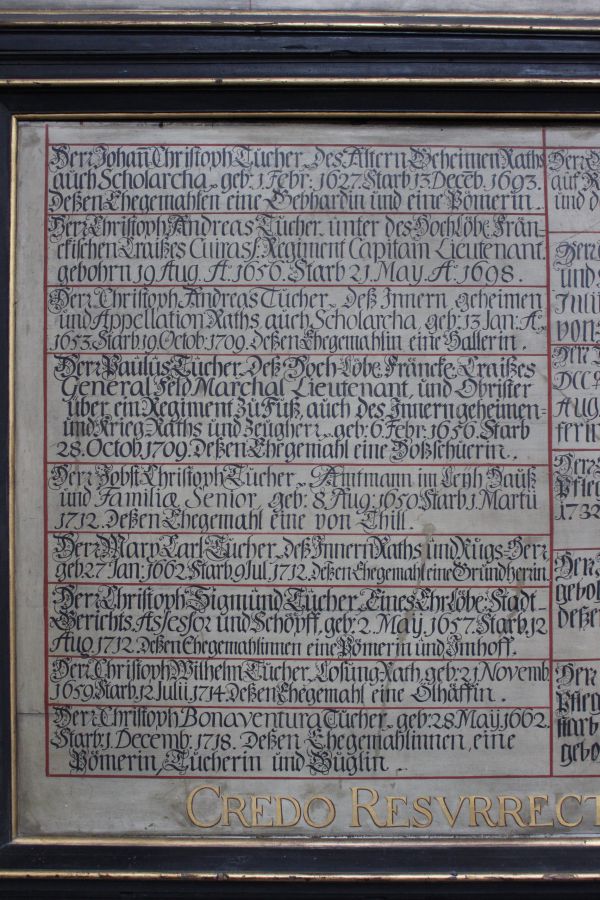 Herr Johan̄ Christoph Tucher. Des Ältern Geheimen Raths
auch Scholarcha. geb: 1. Febr: 1627. Starb 13. Decēb. 1693.
Deßen Ehegemahlen eine Gebhardin und eine Pömerin.
Herr Christoph Andreas Tucher. unter des Hochlöbl. Frän=
ckischen Craißes Cuiraß. Regiment Capitain Lieutenant.
gebohrn 19 Aug. Aᵒ: 1656. Starb 21. May. Aᵒ: 1698.
Herr Christoph Andreas Tucher. deß Innern geheimen
und Appellation Raths, auch Scholarcha, geb: 13 Jan: Aᵒ.
1653 Starb 19. Octob: 1709. Deßen Ehegemahlin eine Hallerin.
Herr Paulus Tucher. Deß Hoch-Löbl. Fränck. Craißes
General Feld Marchal Lieutenant, und Obrister
über ein Regiment Zu Fuß, auch des Innern geheimen=
und Krieg-Raths und Zeugherr. geb: 6. Febr: 1656. Starb
28. Octob. 1709. Deßen Ehegemahl eine Holtzschuerin.
Herr Jobst Christoph Tucher. Amtmann im Leyh Hauß
und Familiæ Senior. geb: 8. Aug: 1650 Starb 1. Martii
1712. Deßen Ehegemahl eine von Thill.
Herr Marx Carl Tucher. deß Innern Raths und Rugs-Herr
geb. 27 Jan: 1662. Starb 9. Jul. 1712. Deßen Ehegemahl eine Gründherin.
Herr Christoph Sigmund Tucher. Eines Ehrlöbl: Stadt-
Gerichts Assessor und Schöpff, geb: 2. May, 1657. Starb. 12
Aug. 1712. Deßen Ehegemahlinnen eine Pömerin und Imhoff.
Herr Christoph Wilhelm Tucher. Losung-Rath, geb: 21. Novemb.
1659 Starb. 12. Julii 1714. Deßen Ehegemahl eine Ölhäffin.
Herr Christoph Bonaventura Tucher. geb: 28. May. 1662.
Starb: 1. Decemb. 1718. Deßen Ehegemahlinnen, eine
Pömerin, Tucherin und Buglin.
CREDO RESVRRECT